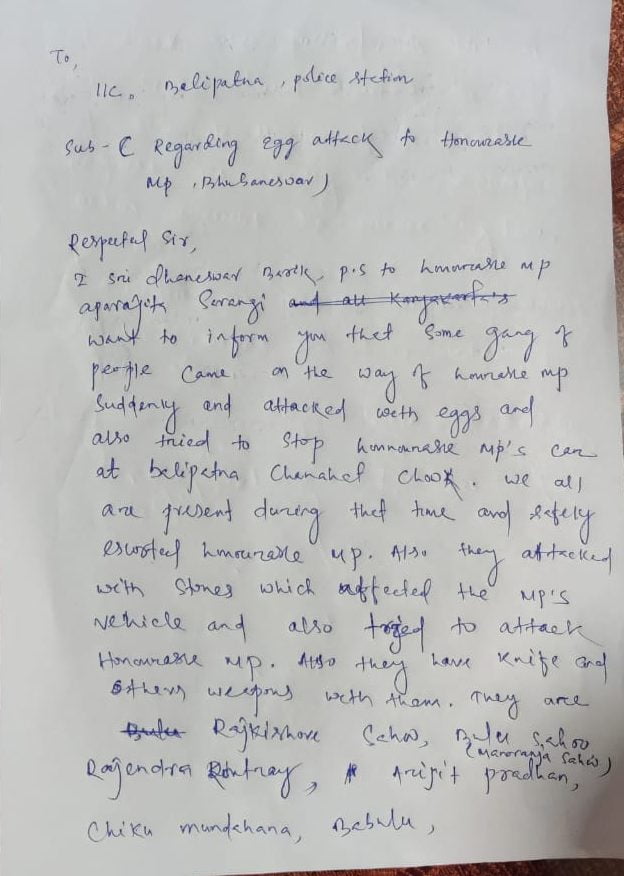 To,
IIC, Balipatna, police station
Sub - ( Regarding Egg attack to Honourable
Mp, Bhubaneswar)
Respected Sir,
I sri dhaneswar Barik, p.s to honourable mp
aparajita Sarangi and all Karyakarta's
want to inform you that Some gang of
people Came on the way of honrable mp
Suddenly and attacked with eggs and
also tried to stop honourable Mp's car
at balipatna Chanahat Chook. we all
are present during that time and safely
escorted honourable MP. Also they attacked
with Stones which affected the MP's
vehicle and also tried to attack
Honourable MP. Also they have Knife and
others weapons with them. They are
Bulu Rajkishore Sahoo, Bulu Sahoo
(Manoranja Sahoo)
Rajendra Routray, Arijit pradhan,
Chiku mundahana, Babulu,